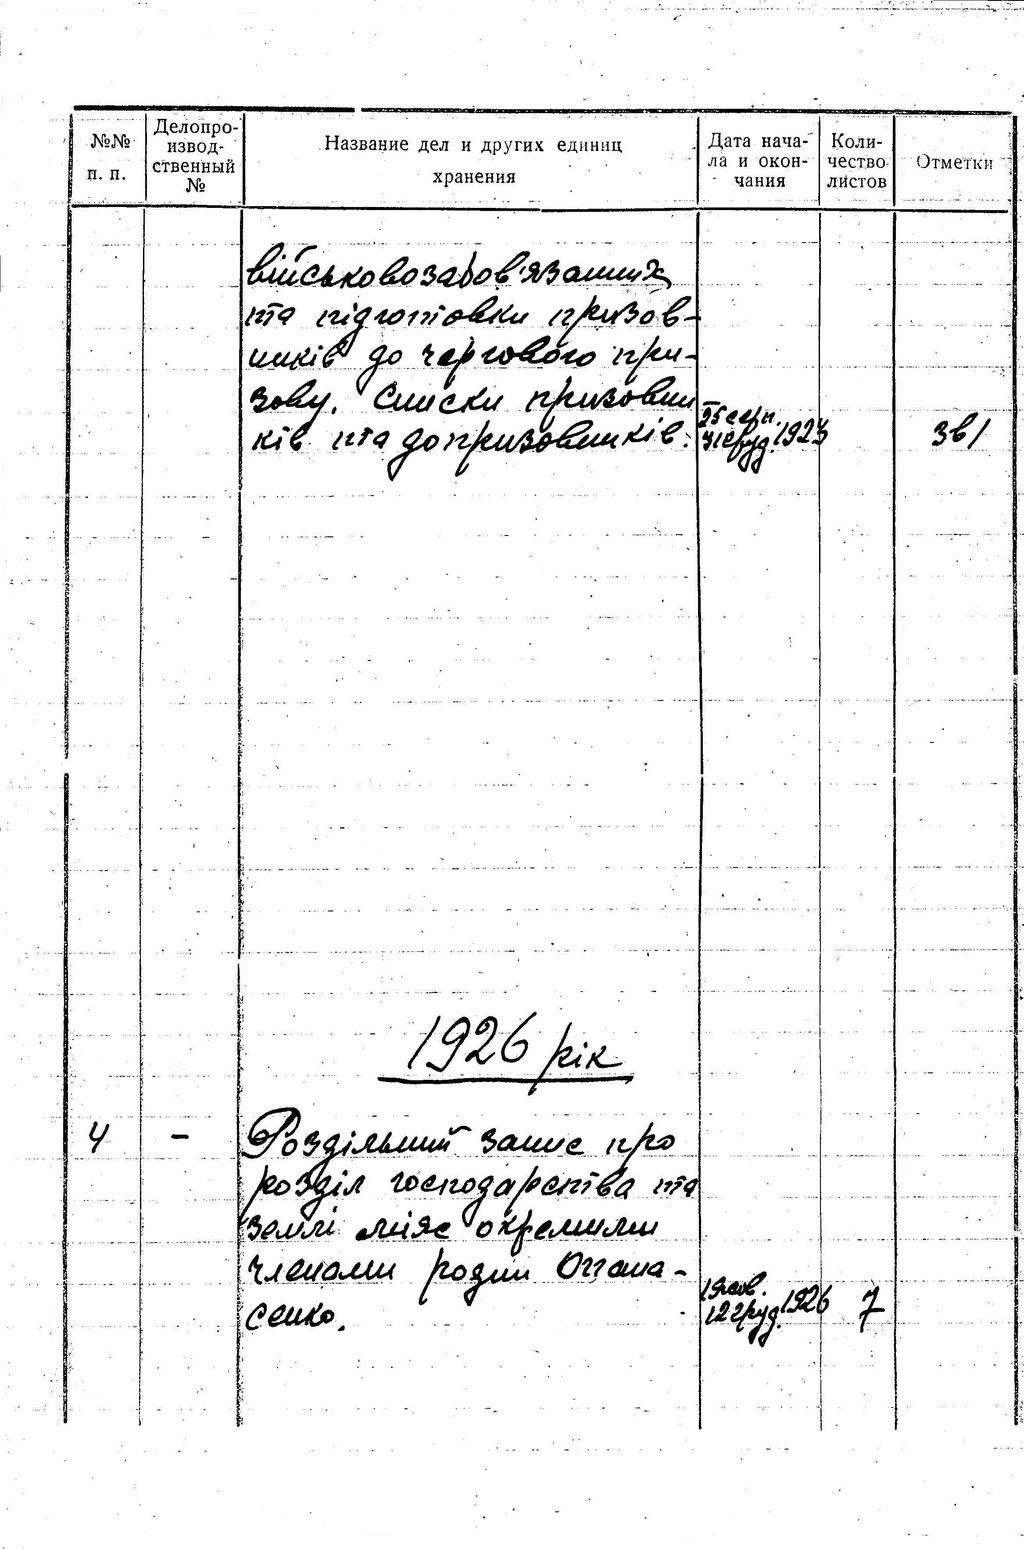 №№ п. п.
Делопро-
извод-
ственный
№
Название дел и других единиц
хранения
Дата нача-
ла и окон-
чания
Коли-
чество
листов
Отметки
військовозабов'язаних
та підготовки призов-
ників до чергового при-
зову. Списки призовни-
ків та допризовників.
25 серп.
31 груд. 1923
361
1926 рік
4 –
Роздільний запис про
розділ господарства та
землі між окремими
членами родин Опана-
сенко.
1 жов.
12 груд. 1926 7